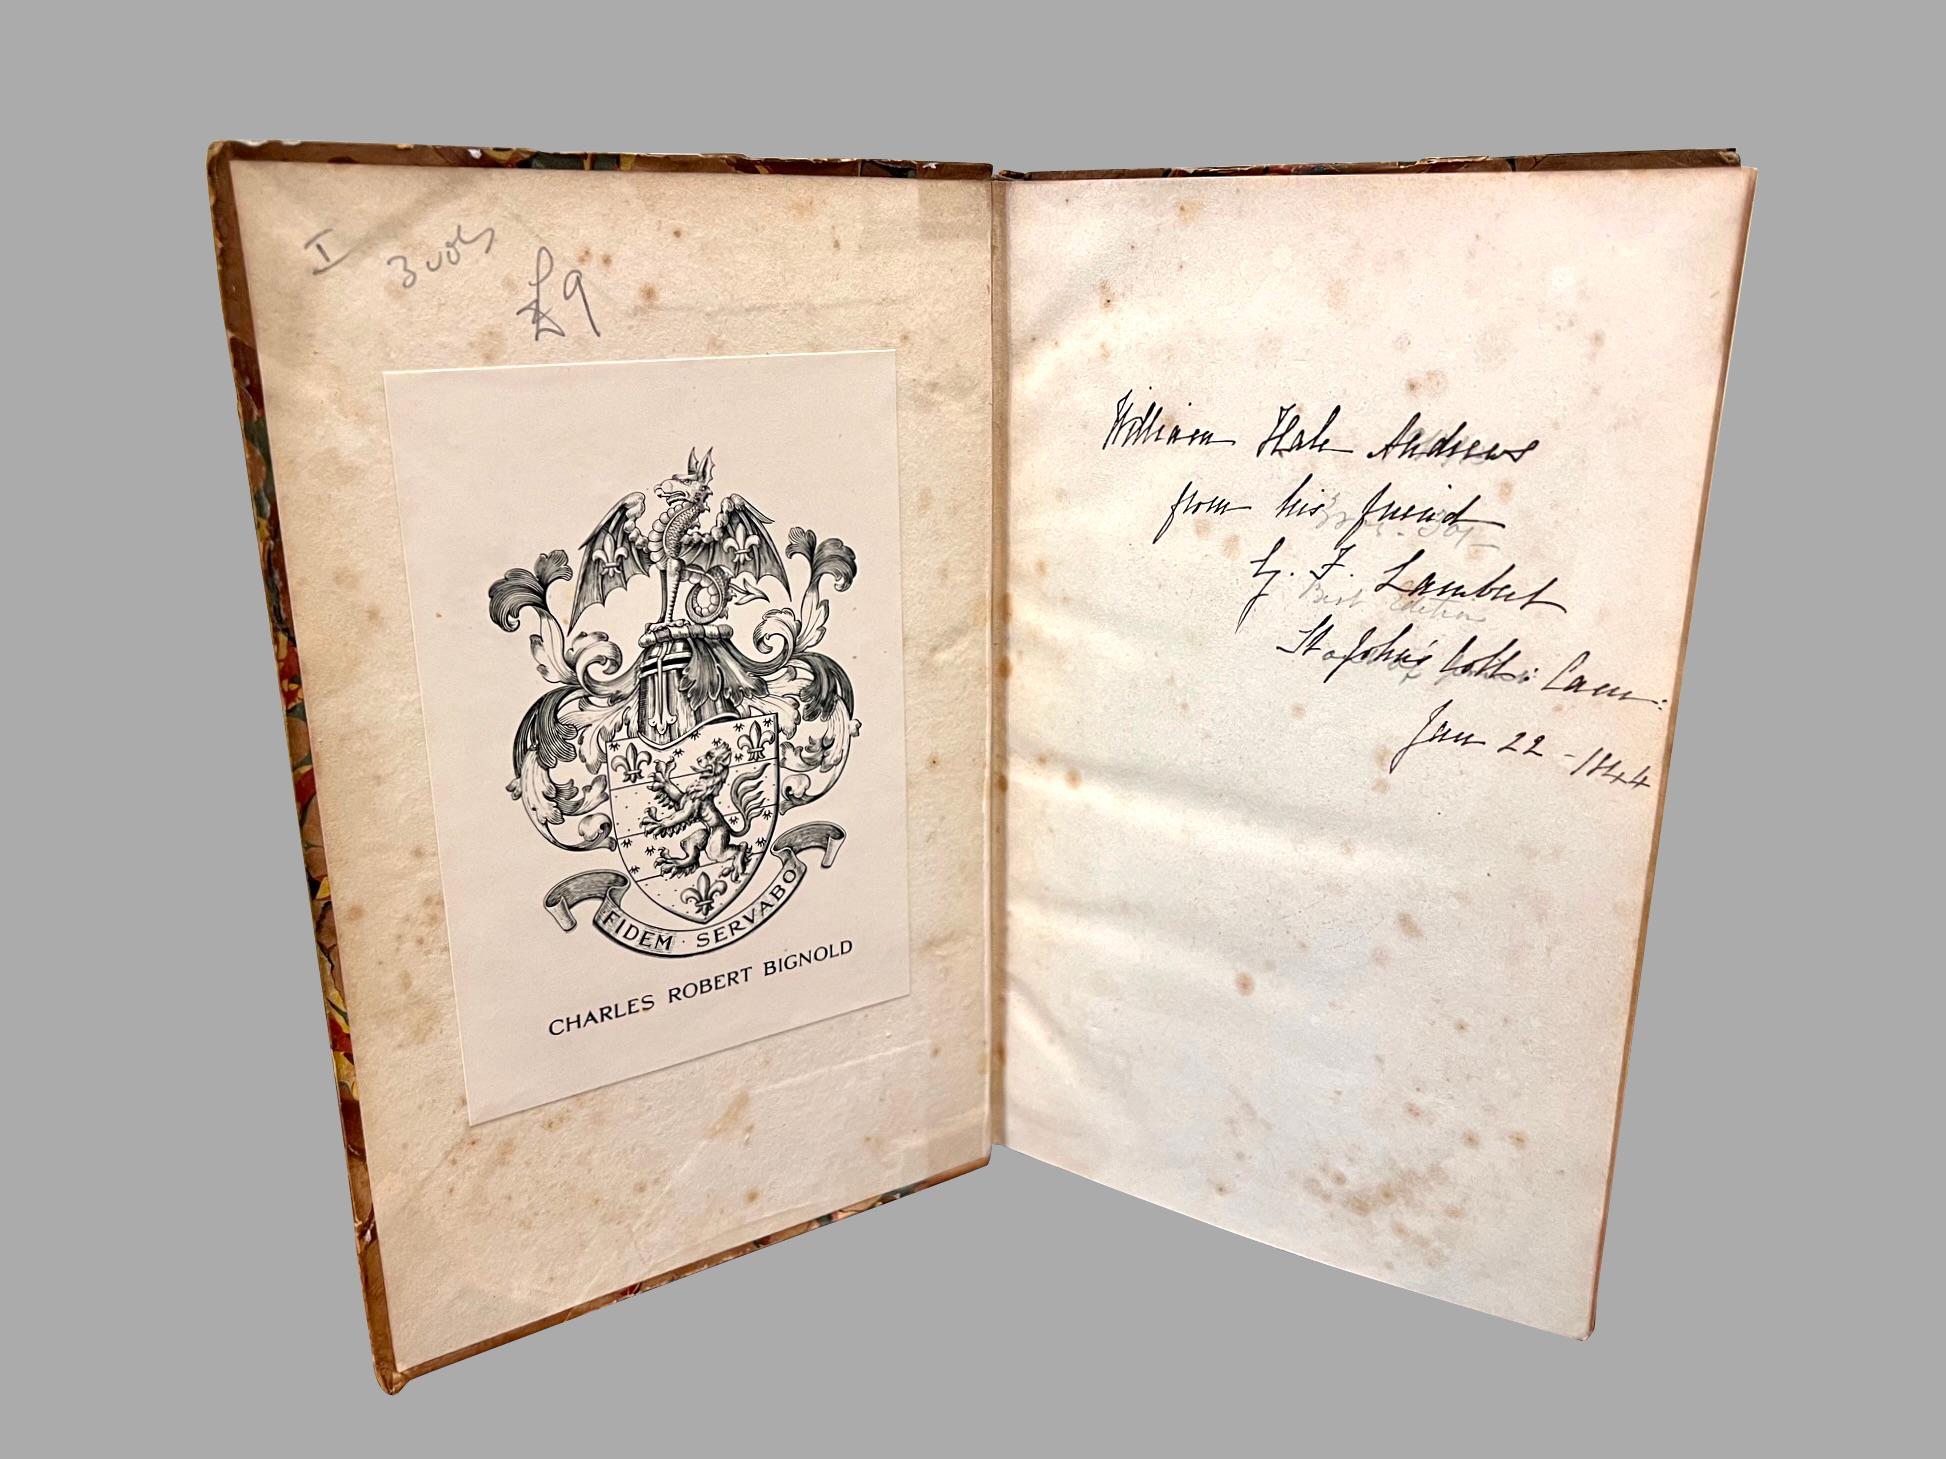 I
3 vols
£9
FIDEM · SERVABO
CHARLES ROBERT BIGNOLD
William Hale Andrews
from his friend
G. F. Lambert
St John's Coll: Cam:
Jan 22 - 1844
Best Edition